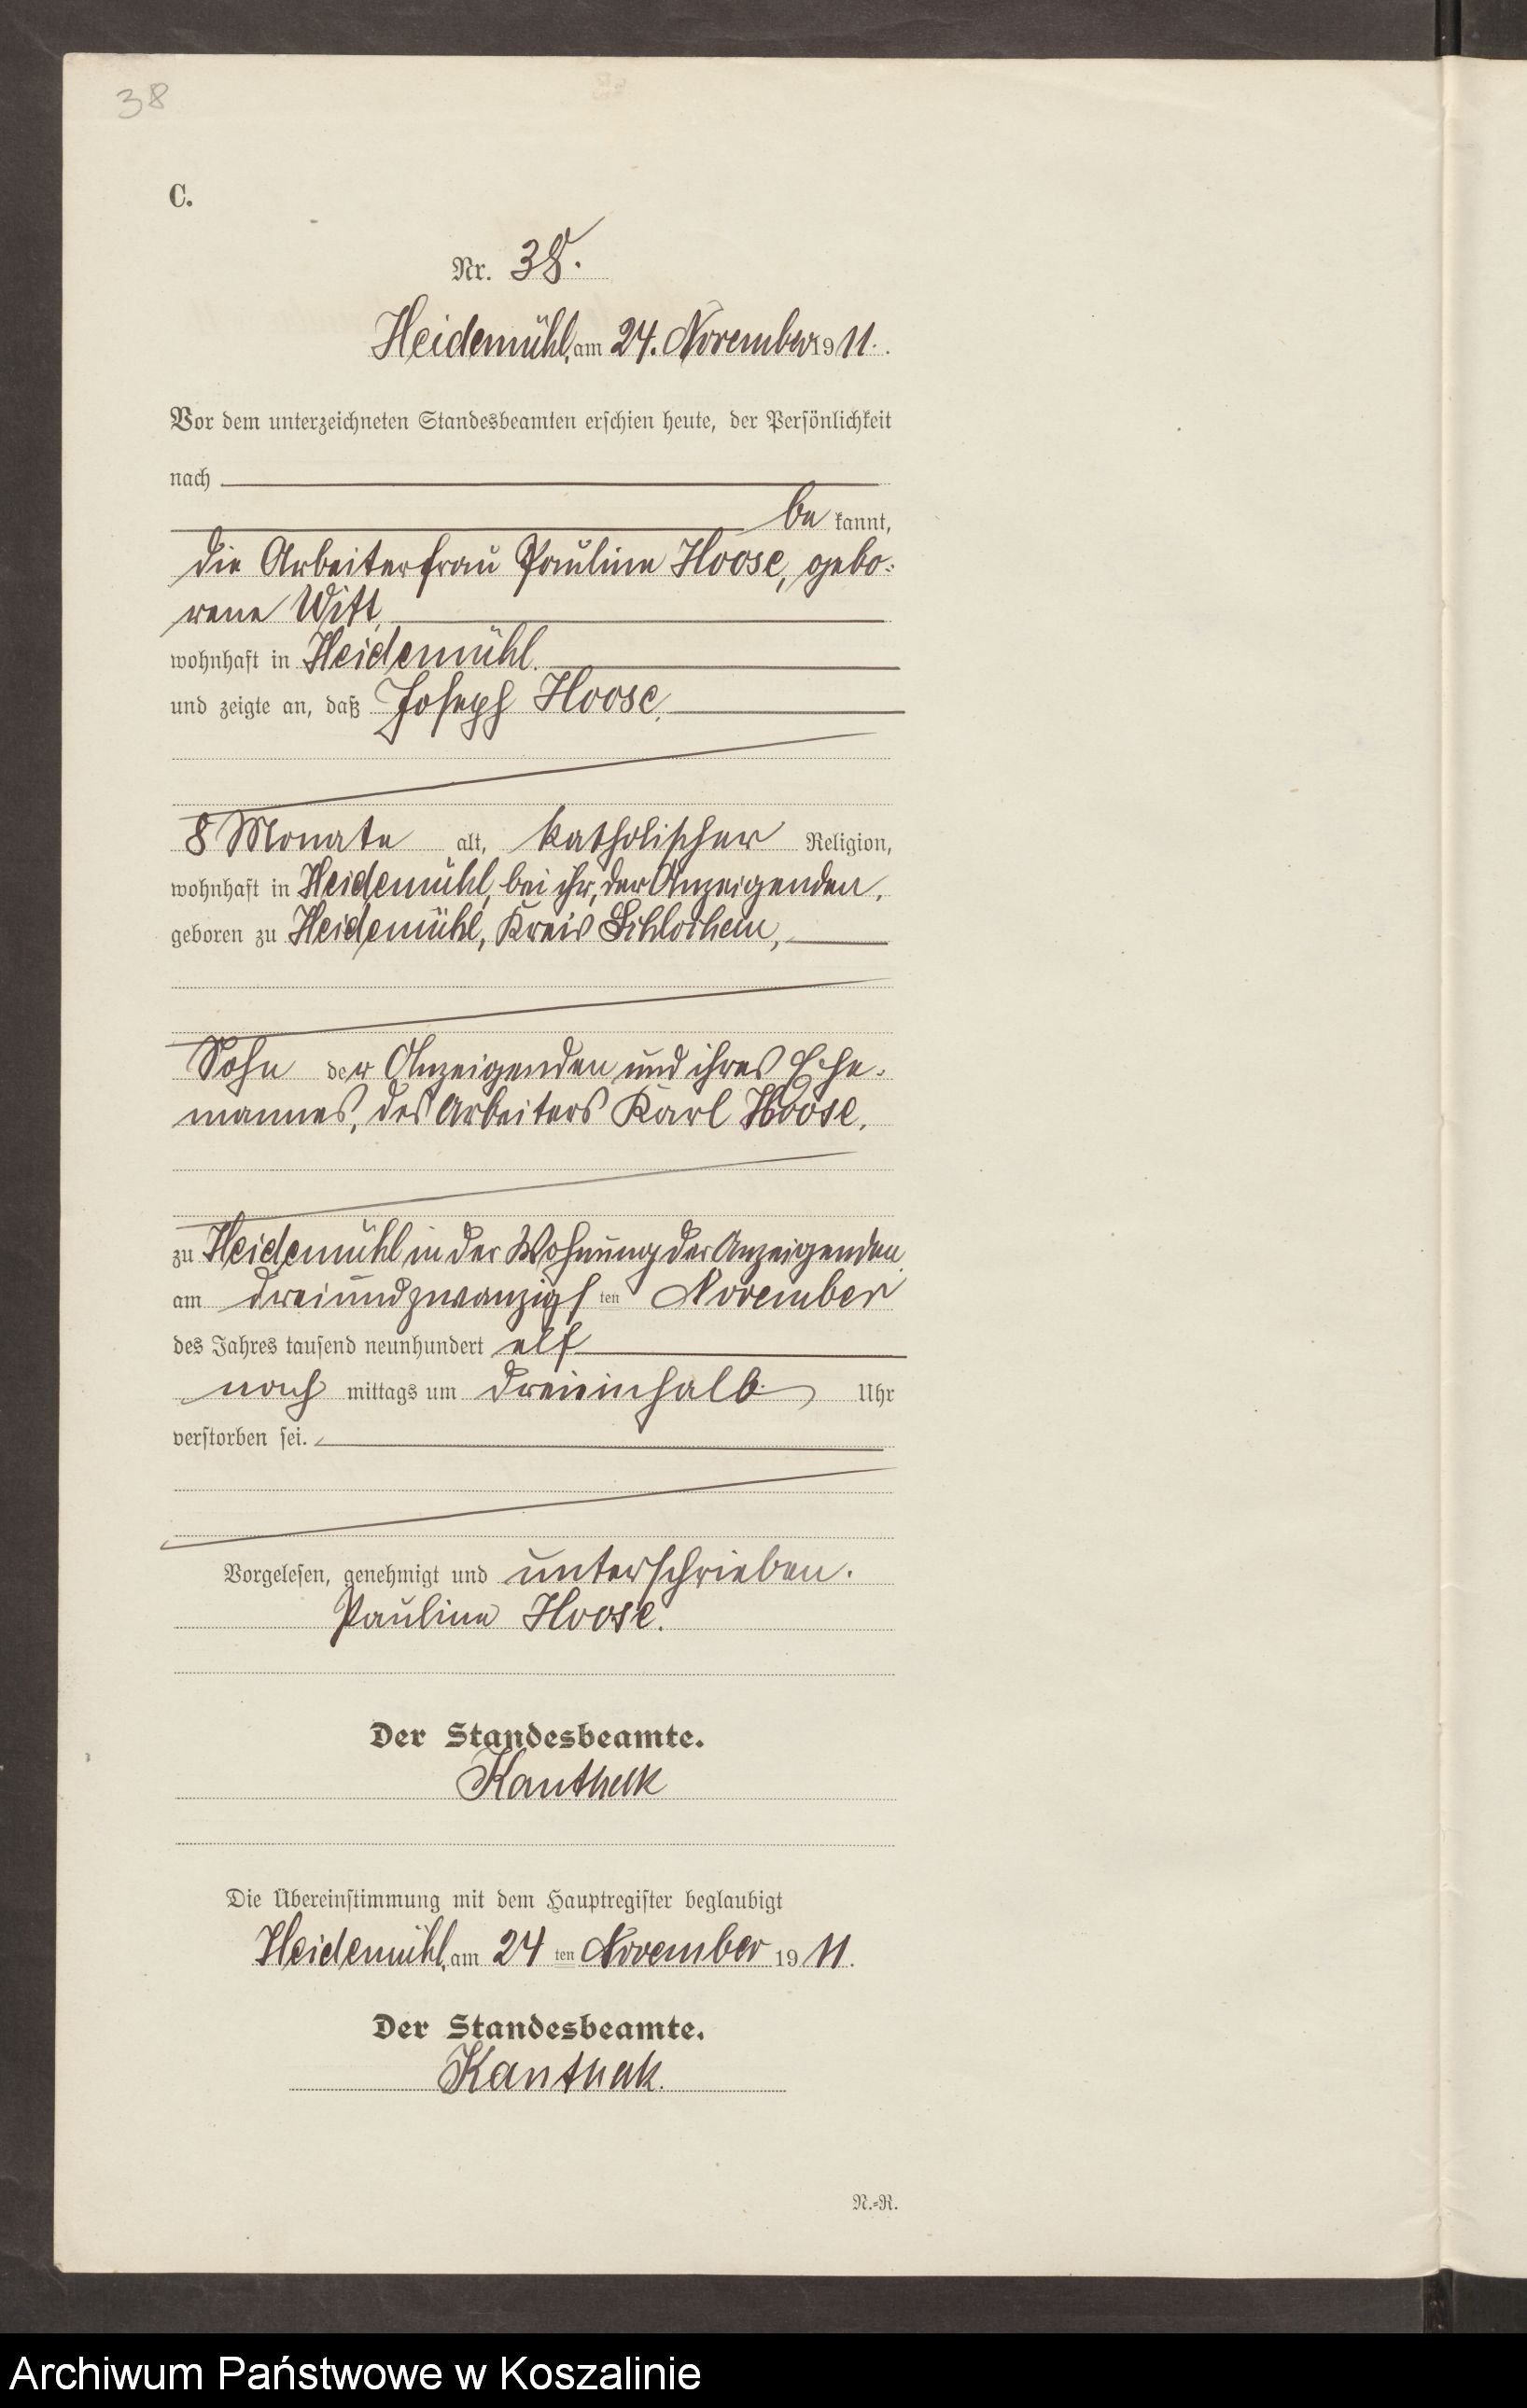 38
C.
Nr. 38.
Heidemühl, am 24. November 1911.
Vor dem unterzeichneten Standesbeamten erschien heute, der Persönlichkeit
nach
be kannt,
die Arbeiterfrau Pauline Hoose, gebo-
rene Witt,
wohnhaft in Heidemühl.
und zeigte an, daß Joseph Hoose,
8 Monate alt, katholischer Religion,
wohnhaft in Heidemühl, bei ihr, der Anzeigenden,
geboren zu Heidemühl, Kreis Schlochau,
Sohn der Anzeigenden und ihres Ehe-
mannes, des Arbeiters Karl Hoose,
zu Heidemühl in der Wohnung der Anzeigenden,
am dreiundzwanzigsten November
des Jahres tausend neunhundert elf
nach mittags um dreieinhalb Uhr
verstorben sei.
Vorgelesen, genehmigt und unterschrieben.
Pauline Hoose.
Der Standesbeamte.
Kanthak
Die Übereinstimmung mit dem Hauptregister beglaubigt
Heidemühl, am 24 ten November 1911.
Der Standesbeamte.
Kanthak.
N.-R.
Archiwum Państwowe w Koszalinie